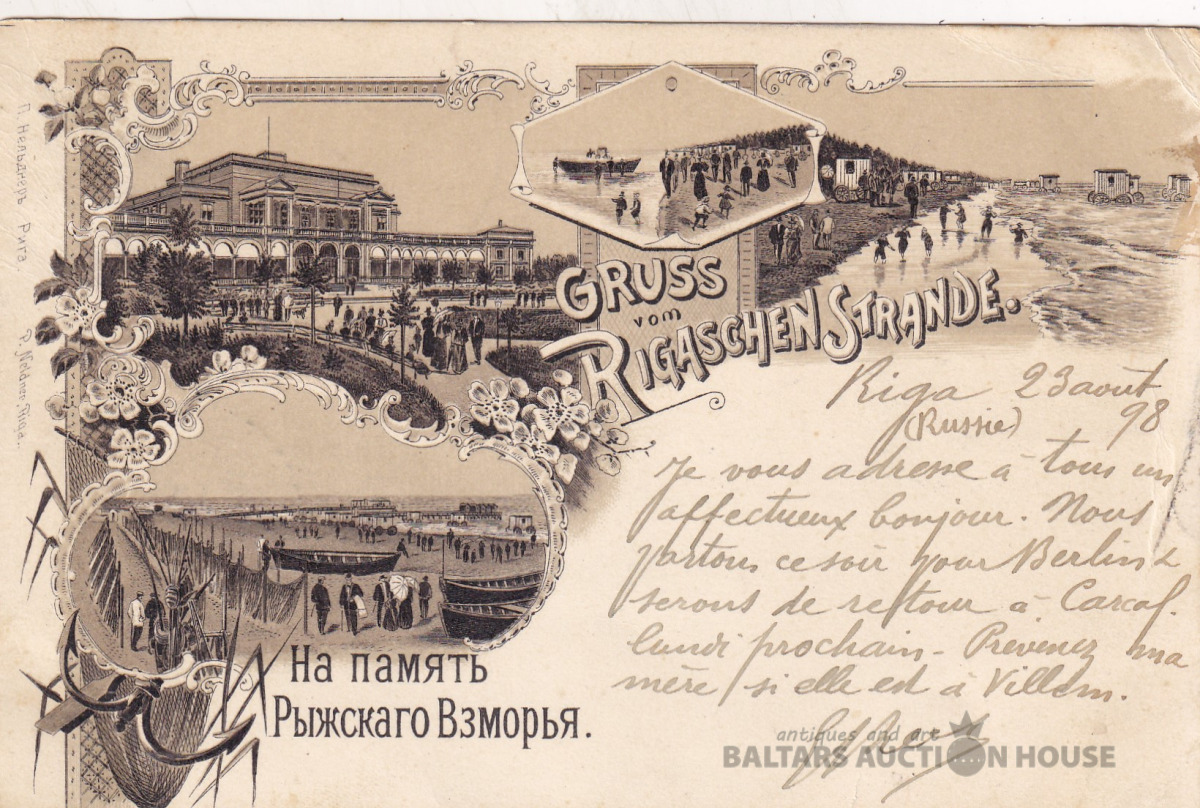 П. Нельднеръ, Рига,
P. Neldner, Riga.
GRUSS
vom
RIGASCHEN STRANDE.
Riga 23 aout
(Russie) 98
Je vous adresse à tous un
affectueux bonjour. Nous
partons ce soir pour Berlin &
serons de retour à Carcas.
lundi prochain - Prévenez ma
mère si elle est à Villem.
На память
Рыжскаго Взморья.
antiques and art
BALTARS AUCTION HOUSE